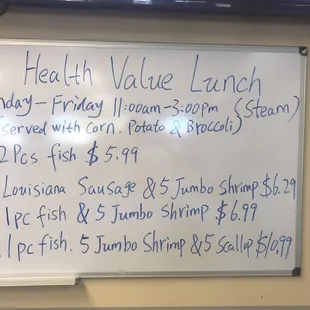 Health Value Lunch
nday - Friday 11:00am-3:00pm (Steam)
served with Corn. Potato & Broccoli)
2 Pcs fish $5.99
Louisiana Sausage & 5 Jumbo Shrimp $6.29
1 pc fish & 5 Jumbo Shrimp $6.99
1 pc fish. 5 Jumbo Shrimp & 5 Scallop $10.99